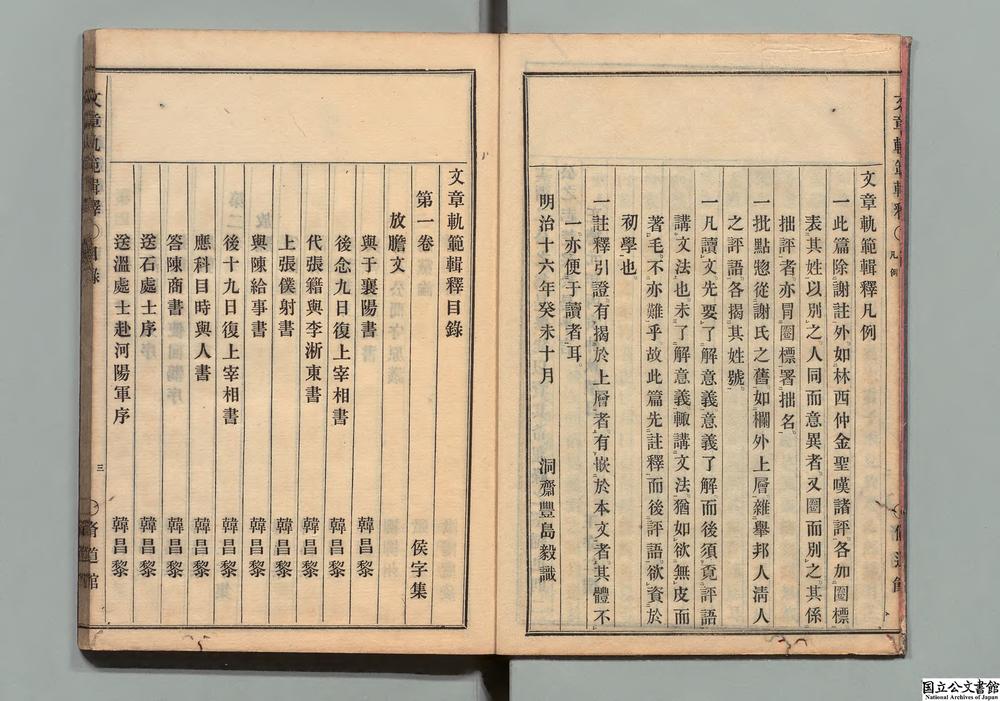 文章軌範輯釋凡例
一此篇除謝註外如林西仲金聖嘆諸評各加圈標
表其姓以別之人同而意異者又圈而別之其係
拙評者亦冒圈標署拙名
一批點惣從謝氏之舊如欄外上層雜舉邦人淸人
之評語各揭其姓號
一凡讀文先要了解意義意義了解而後須覔評語
講文法也未了解意義輙講文法猶如欲無皮而
著毛不亦難乎故此篇先註釋而後評語欲資於
初學也
一註釋引證有揭於上層者有嵌於本文者其體不
一亦便于讀者耳
明治十六年癸未十月 洞齋豐島毅識
文章軌範輯釋目錄
第一卷 侯字集
放膽文
與于襄陽書 韓昌黎
後念九日復上宰相書 韓昌黎
代張籍與李浙東書 韓昌黎
上張僕射書 韓昌黎
與陳給事書 韓昌黎
後十九日復上宰相書 韓昌黎
應科目時與人書 韓昌黎
答陳商書 韓昌黎
送石處士序 韓昌黎
送溫處士赴河陽軍序 韓昌黎
文章軌範輯釋 目錄 三
文章軌範輯釋 凡例
国立公文書館
National Archives of Japan